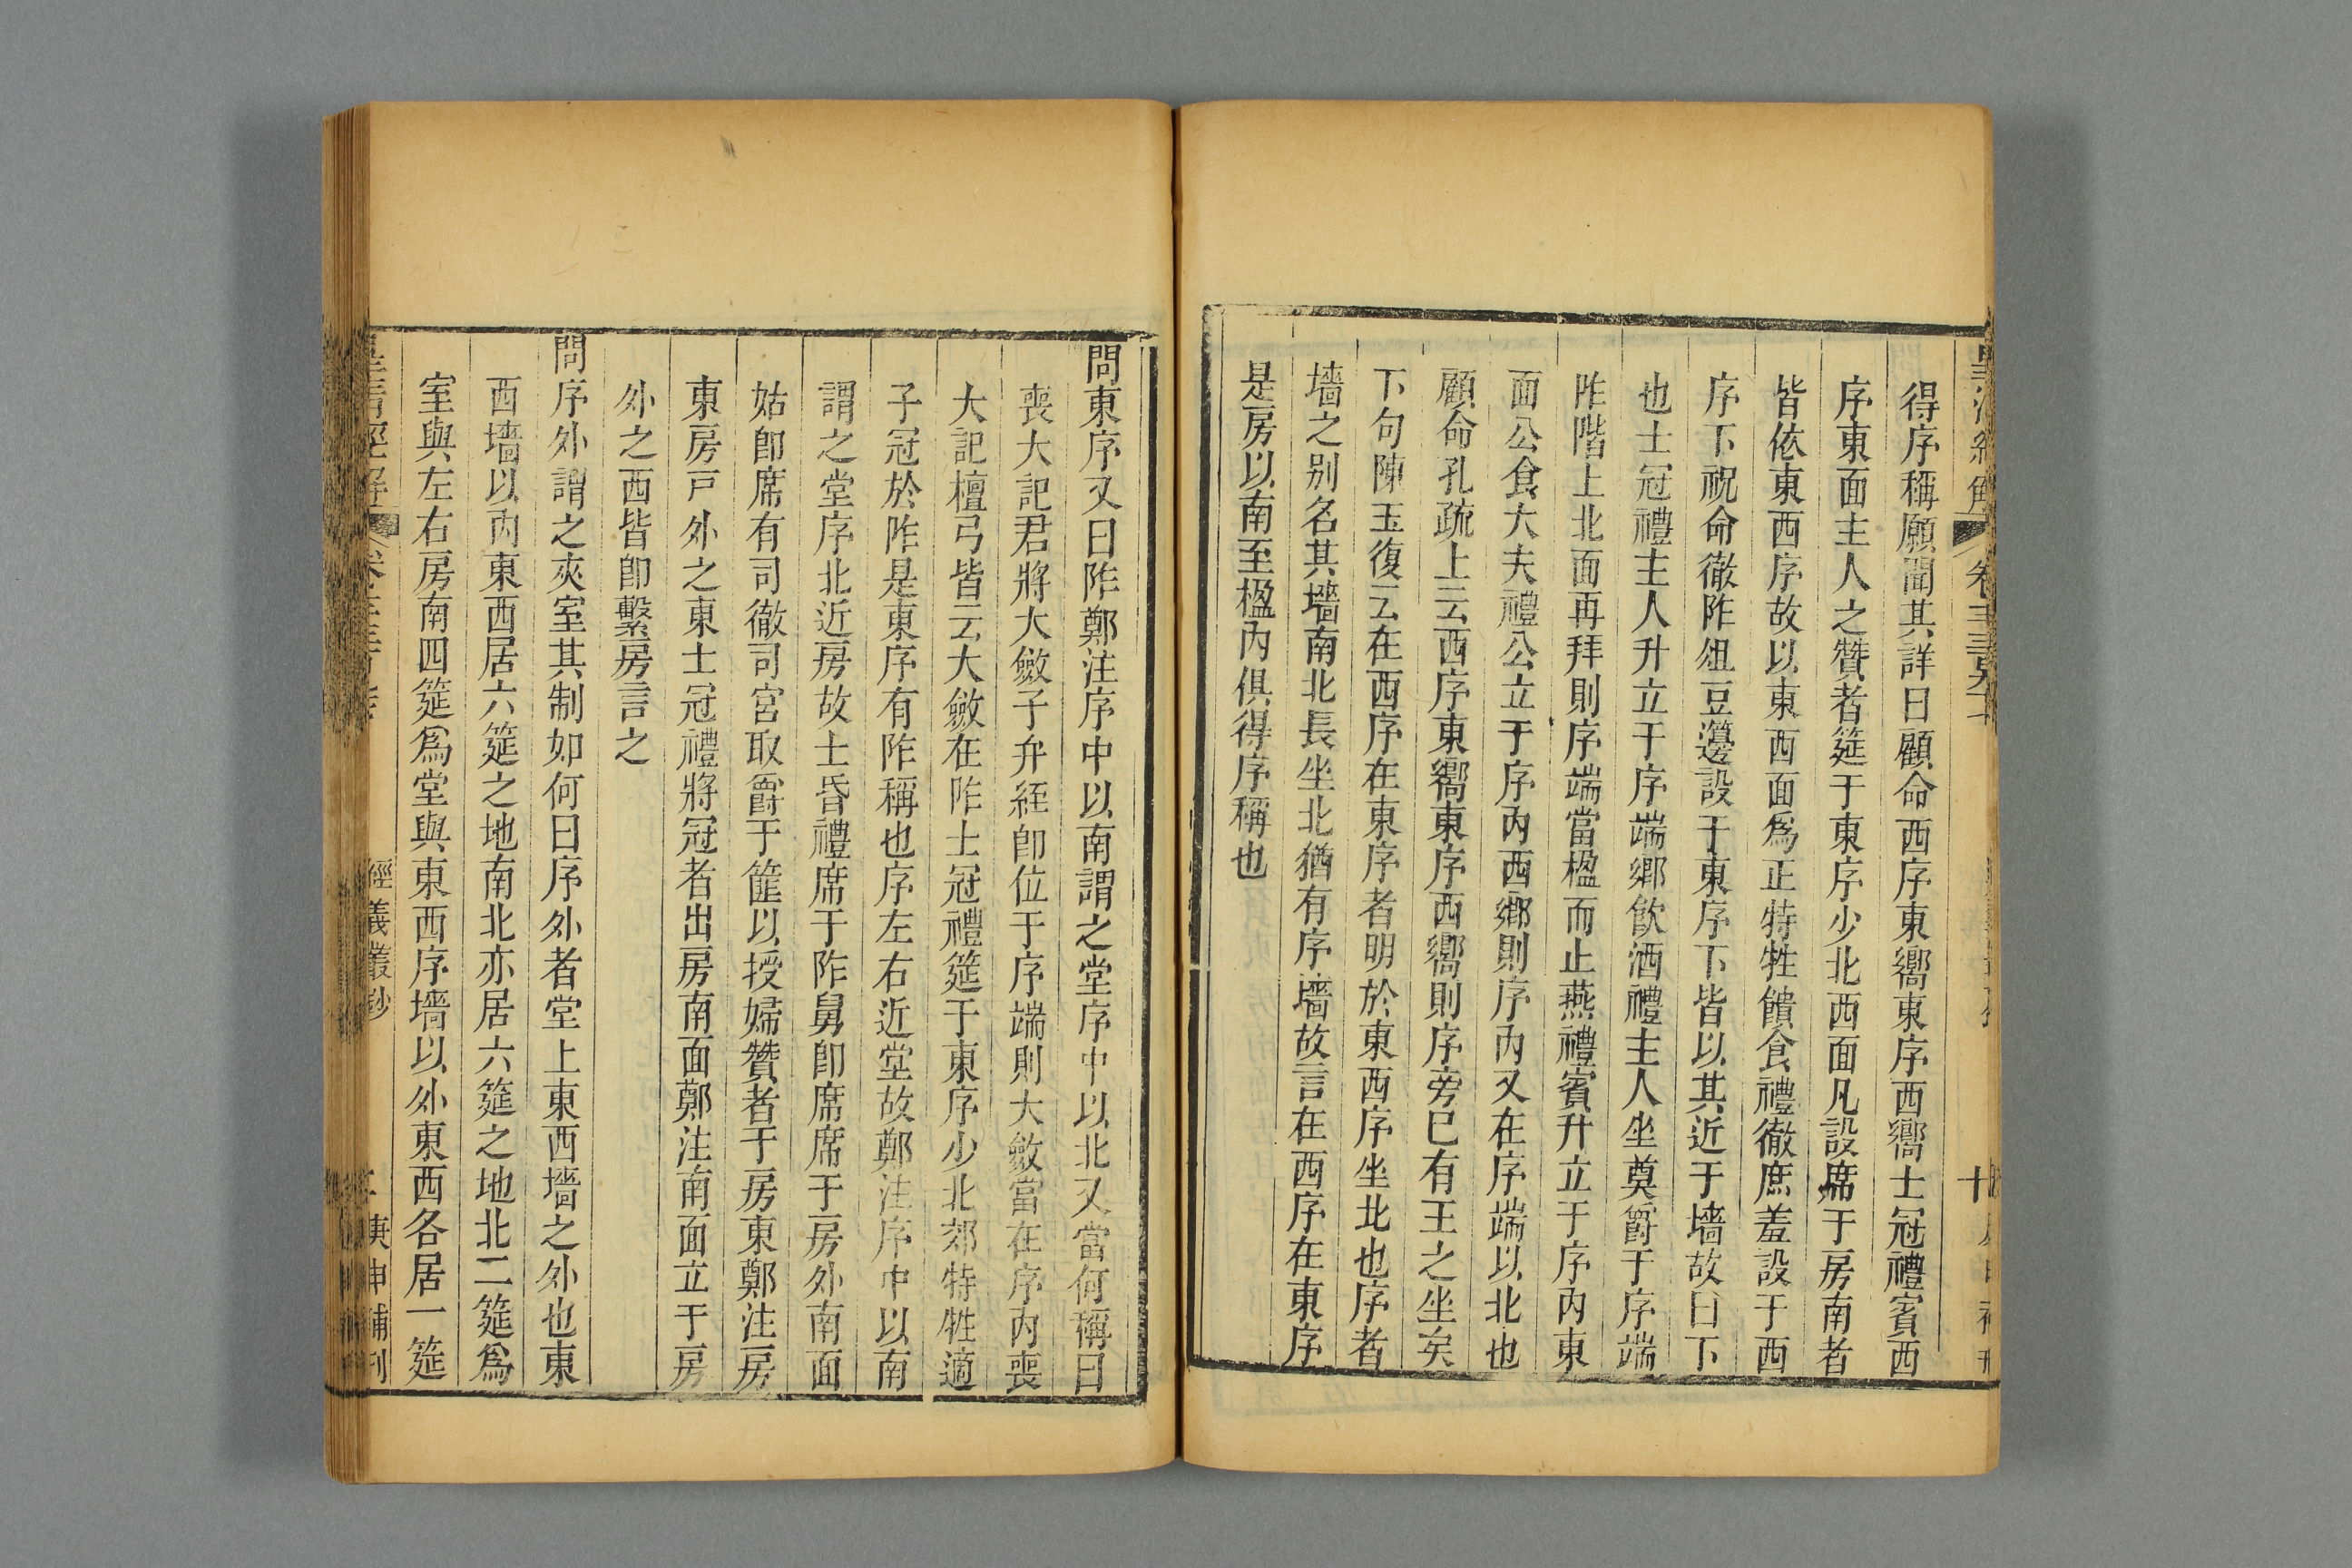 得序稱願聞其詳曰顧命西序東嚮東序西嚮士冠禮賓西
序東面主人之贊者筵于東序少北西面凡設席于房南者
皆依東西序故以東西面爲正特牲饋食禮徹庶羞設于西
序下祝命徹阼俎豆籩設于東序下皆以其近于墻故曰下
也士冠禮主人升立于序端鄉飮酒禮主人坐奠爵于序端
阼階上北面再拜則序端當楹而止燕禮賓升立于序內東
面公食大夫禮公立于序內西鄉則序內又在序端以北也
顧命孔疏上云西序東嚮東序西嚮則序旁已有王之坐矣
下句陳玉復云在西序在東序者明於東西序坐北也序者
墻之別名其墻南北長坐北猶有序墻故言在西序在東序
是房以南至楹內俱得序稱也
問東序又曰阼鄭注序中以南謂之堂序中以北又當何稱曰
喪大記君將大斂子弁絰卽位于序端則大斂當在序內喪
大記檀弓皆云大斂在阼士冠禮筵于東序少北郊特牲適
子冠於阼是東序有阼稱也序左右近堂故鄭注序中以南
謂之堂序北近房故士昏禮席于阼舅卽席席于房外南面
姑卽席有司徹司宮取爵于篚以授婦贊者于房東鄭注房
東房戸外之東士冠禮將冠者出房南面鄭注南面立于房
外之西皆卽繫房言之
問序外謂之夾室其制如何曰序外者堂上東西墻之外也東
西墻以內東西居六筵之地南北亦居六筵之地北二筵爲
室與左右房南四筵爲堂與東西序墻以外東西各居一筵
皇淸經解
經義叢鈔
庚申補刊